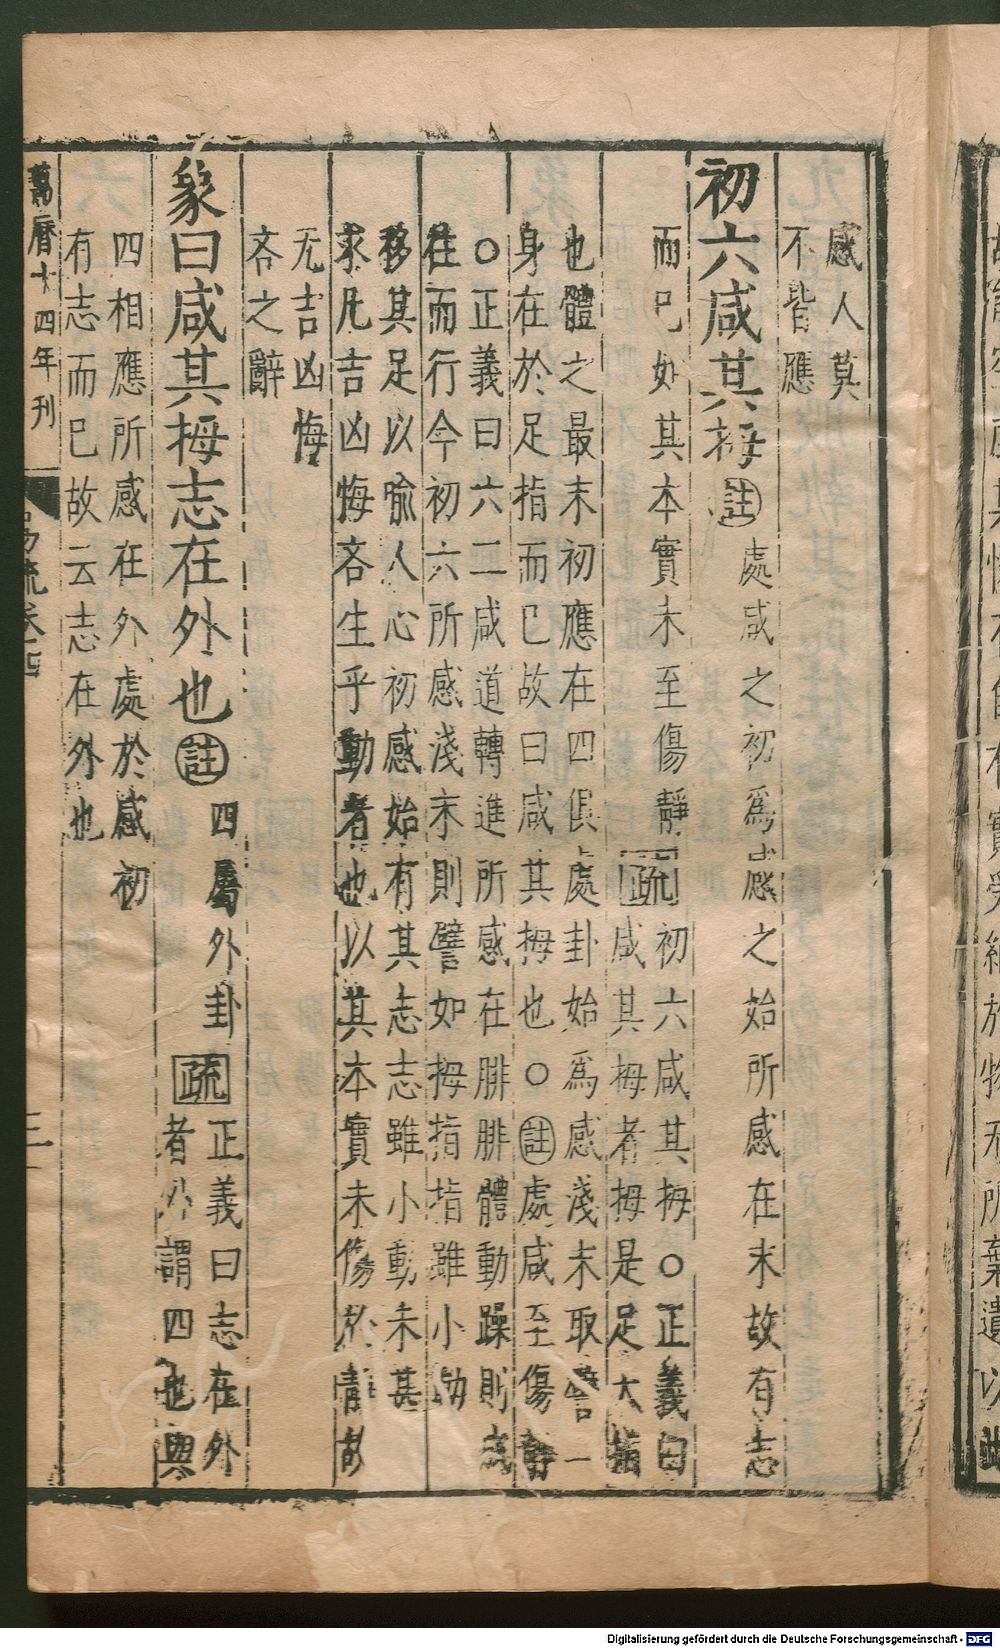 感人莫
不皆應
初六咸其拇註處咸之初為感之始所感在末故有志
而巳如其本實未至傷靜疏初六咸其拇○正義曰
咸其拇者拇是足大指
也體之最末初應在四俱處卦始為感淺末取譬一
身在於足指而巳故曰咸其拇也○註處咸至傷靜
○正義曰六二咸道轉進所感在腓腓體動躁則成
往而行今初六所感淺末則譬如拇指指雖小動
移其足以喻人心初感始有其志志雖小動未甚
求凡吉凶悔吝生乎動者也以其本實未傷於靜故
无吉凶悔
吝之辭
象曰咸其拇志在外也註四屬外卦疏正義曰志在外
者外謂四也與
四相應所感在外處於感初
有志而巳故云志在外也
萬曆十四年刊
易疏卷四
三
Digitalisierung gefördert durch die Deutsche Forschungsgemeinschaft - DFG